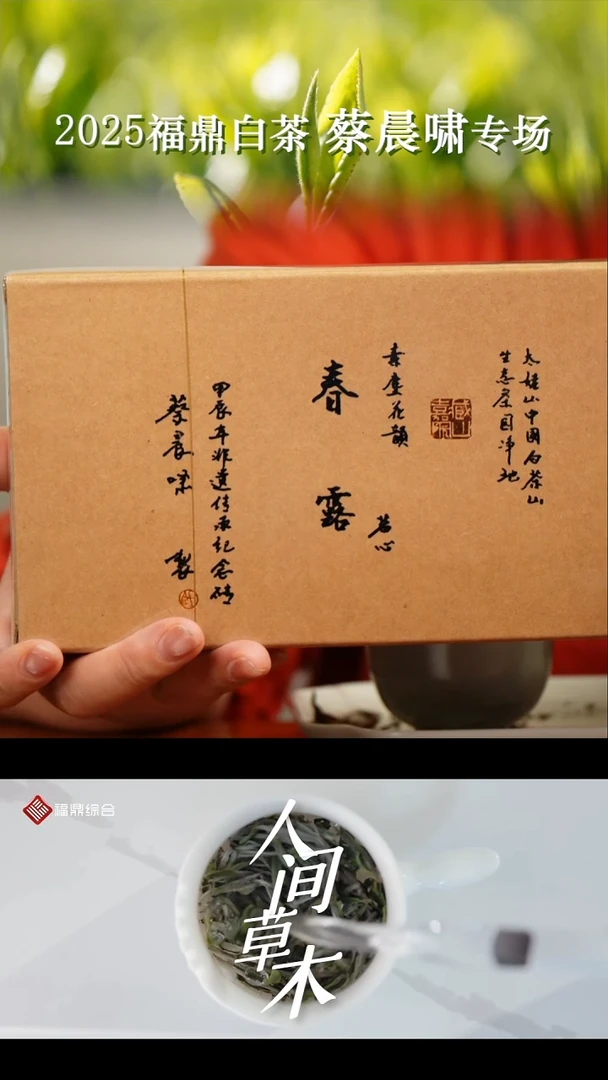 2025福鼎白茶 蔡晨啸专场
太姥山中国白茶山
生态茶园净地
素应花韻
春露
若心
甲辰年非遗传承纪念砖
蔡晨啸 製
福鼎综合
人间草木